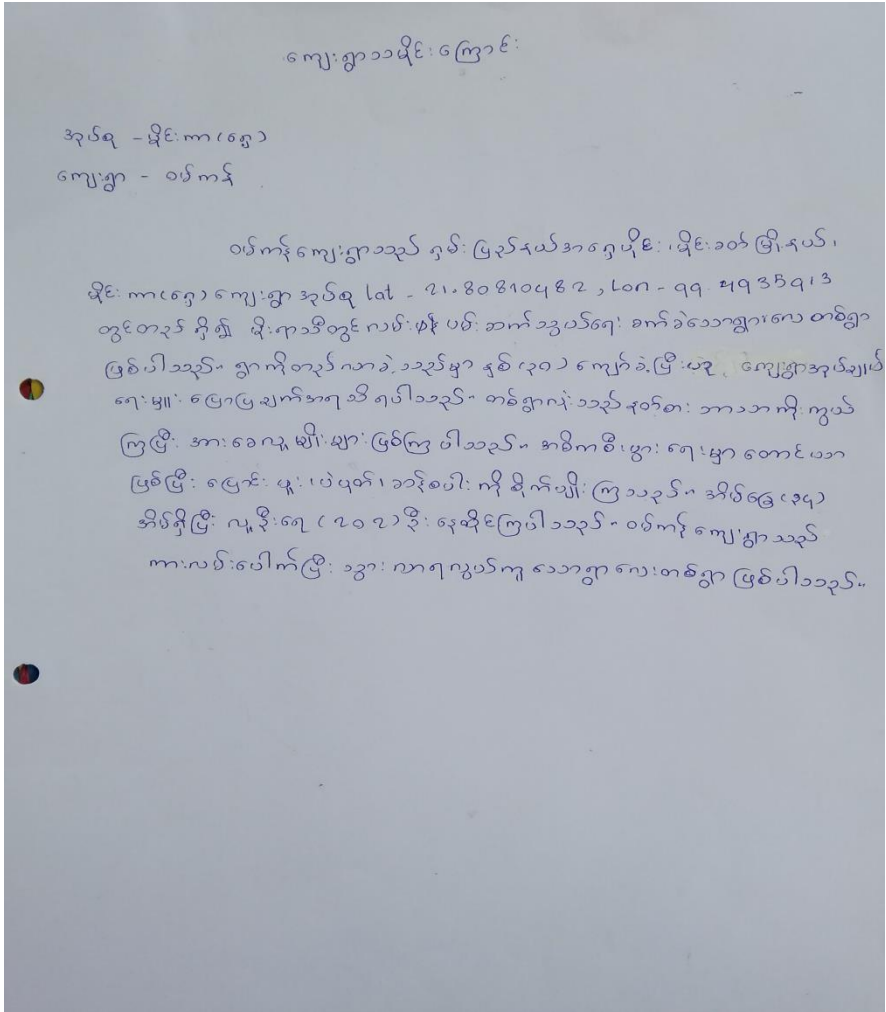 ကျေးရွာသမိုင်းကြောင်း
အုပ်စု - မိုင်းကာ(ရှေ့)
ကျေးရွာ - ဝမ်ကန်
ဝမ်ကန်ကျေးရွာသည် ရှမ်းပြည်နယ်အရှေ့ပိုင်း၊ မိုင်းခတ်မြို့နယ်၊
မိုင်းကာ(ရှေ့) ကျေးရွာအုပ်စု lat - 21.80810482, Lon - 99.4935913
တွင်တည်ရှိ၍ မိုးရာသီတွင်လမ်းပန်းဆက်သွယ်ရေး ခက်ခဲသောရွာလေးတစ်ရွာ
ဖြစ်ပါသည်။ ရွာကိုတည်လာခဲ့သည်မှာ နှစ်(၃၀)ကျော်ခဲ့ပြီးဟု ကျေးရွာအုပ်ချုပ်
ရေးမှူး ပြောပြချက်အရသိရပါသည်။ တစ်ရွာလုံးသည်နတ်စား ဘာသာကိုးကွယ်
ကြပြီး အားခေလူမျိုးများဖြစ်ကြပါသည်။ အဓိကစီးပွားရေးမှာ တောင်ယာ
ဖြစ်ပြီး ပြောင်းဖူး၊ ပဲပုတ်၊ သန်စပါးကိုစိုက်ပျိုးကြသည်။ အိမ်ခြေ(၃၄)
အိမ်ရှိပြီး လူဦးရေ(၂၀၂)ဦး နေထိုင်ကြပါသည်။ ဝမ်ကန်ကျေးရွာသည်
ကားလမ်းပေါက်ပြီး သွားလာရလွယ်ကူသောရွာလေးတစ်ရွာဖြစ်ပါသည်။